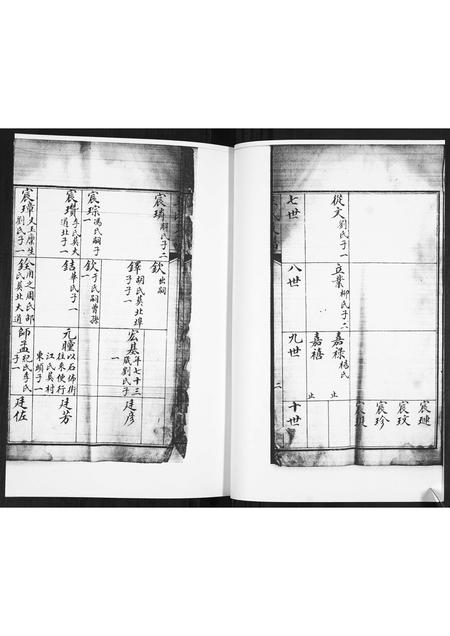 七世
八世
九世
十世
從文 劉氏子一
立業 柳氏子二
嘉祿 楊氏
止
嘉禧
止
宸璉
宸玟
宸珍
宸
宸璘 胡氏嗣子二
宸琮 馮氏嗣子一
宸瓚 李氏葬大道北子一
宸璋 又玉廩生劉氏子一
欽 出嗣
鐸 胡氏葬北埠子一
欽 于氏嗣曾孫一
銡 華氏子一
銓 用之周氏邱氏葬北大道
宏基 年七十三歲劉氏子一
元瞳 以石佛街往來便行江氏葬村東頭子一
師孟 紀氏李氏子一
廷彥
廷芳
廷佐